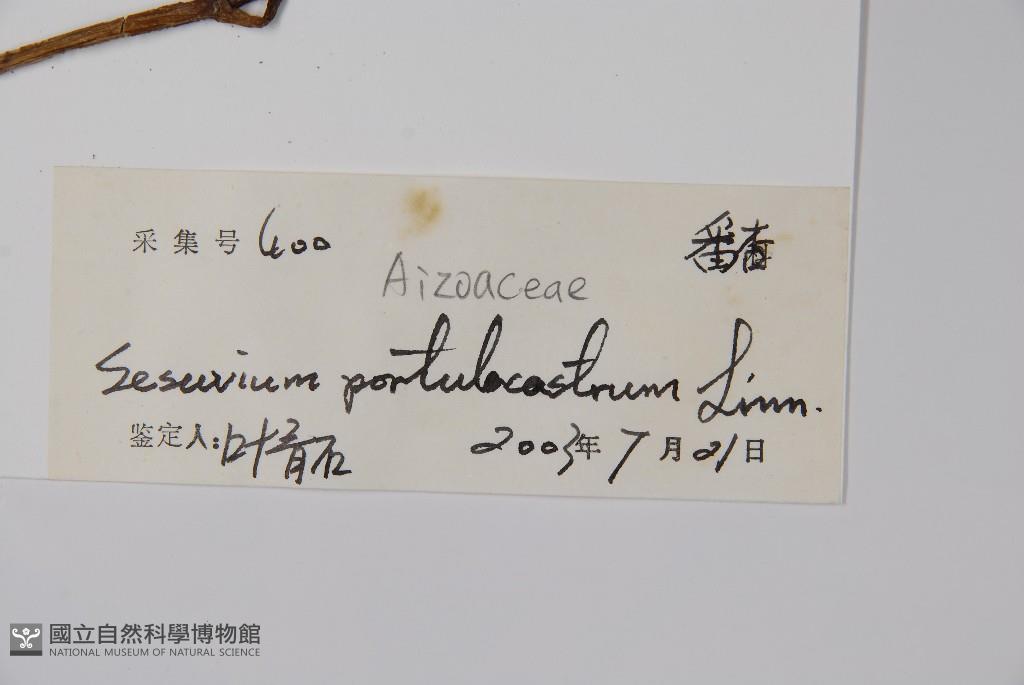 采集号 400
番杏
Aizoaceae
Sesuvium portulacastrum Linn.
鉴定人:叶育石 2003年7月21日
國立自然科學博物館
NATIONAL MUSEUM OF NATURAL SCIENCE